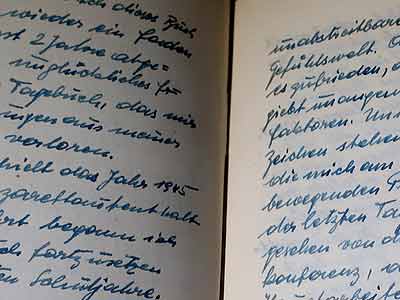 ch dieses Buch
wieder ein Faden
st 2 Jahre abge=
unglückliches
Tagebuch, das mir
ungen aus meiner
verloren.
hielt das Jahr 1945
zarettaufenthalt
ort begann ich
ch fortzusetzen
en Schuljahre,
unabstreitbare
Gefühlswelt.
es zufrieden,
giebt unangen
faktoren.
Zeichen stehen
die mich am
bewegenden
der letzten Ta
gesehen von d
konferenz,